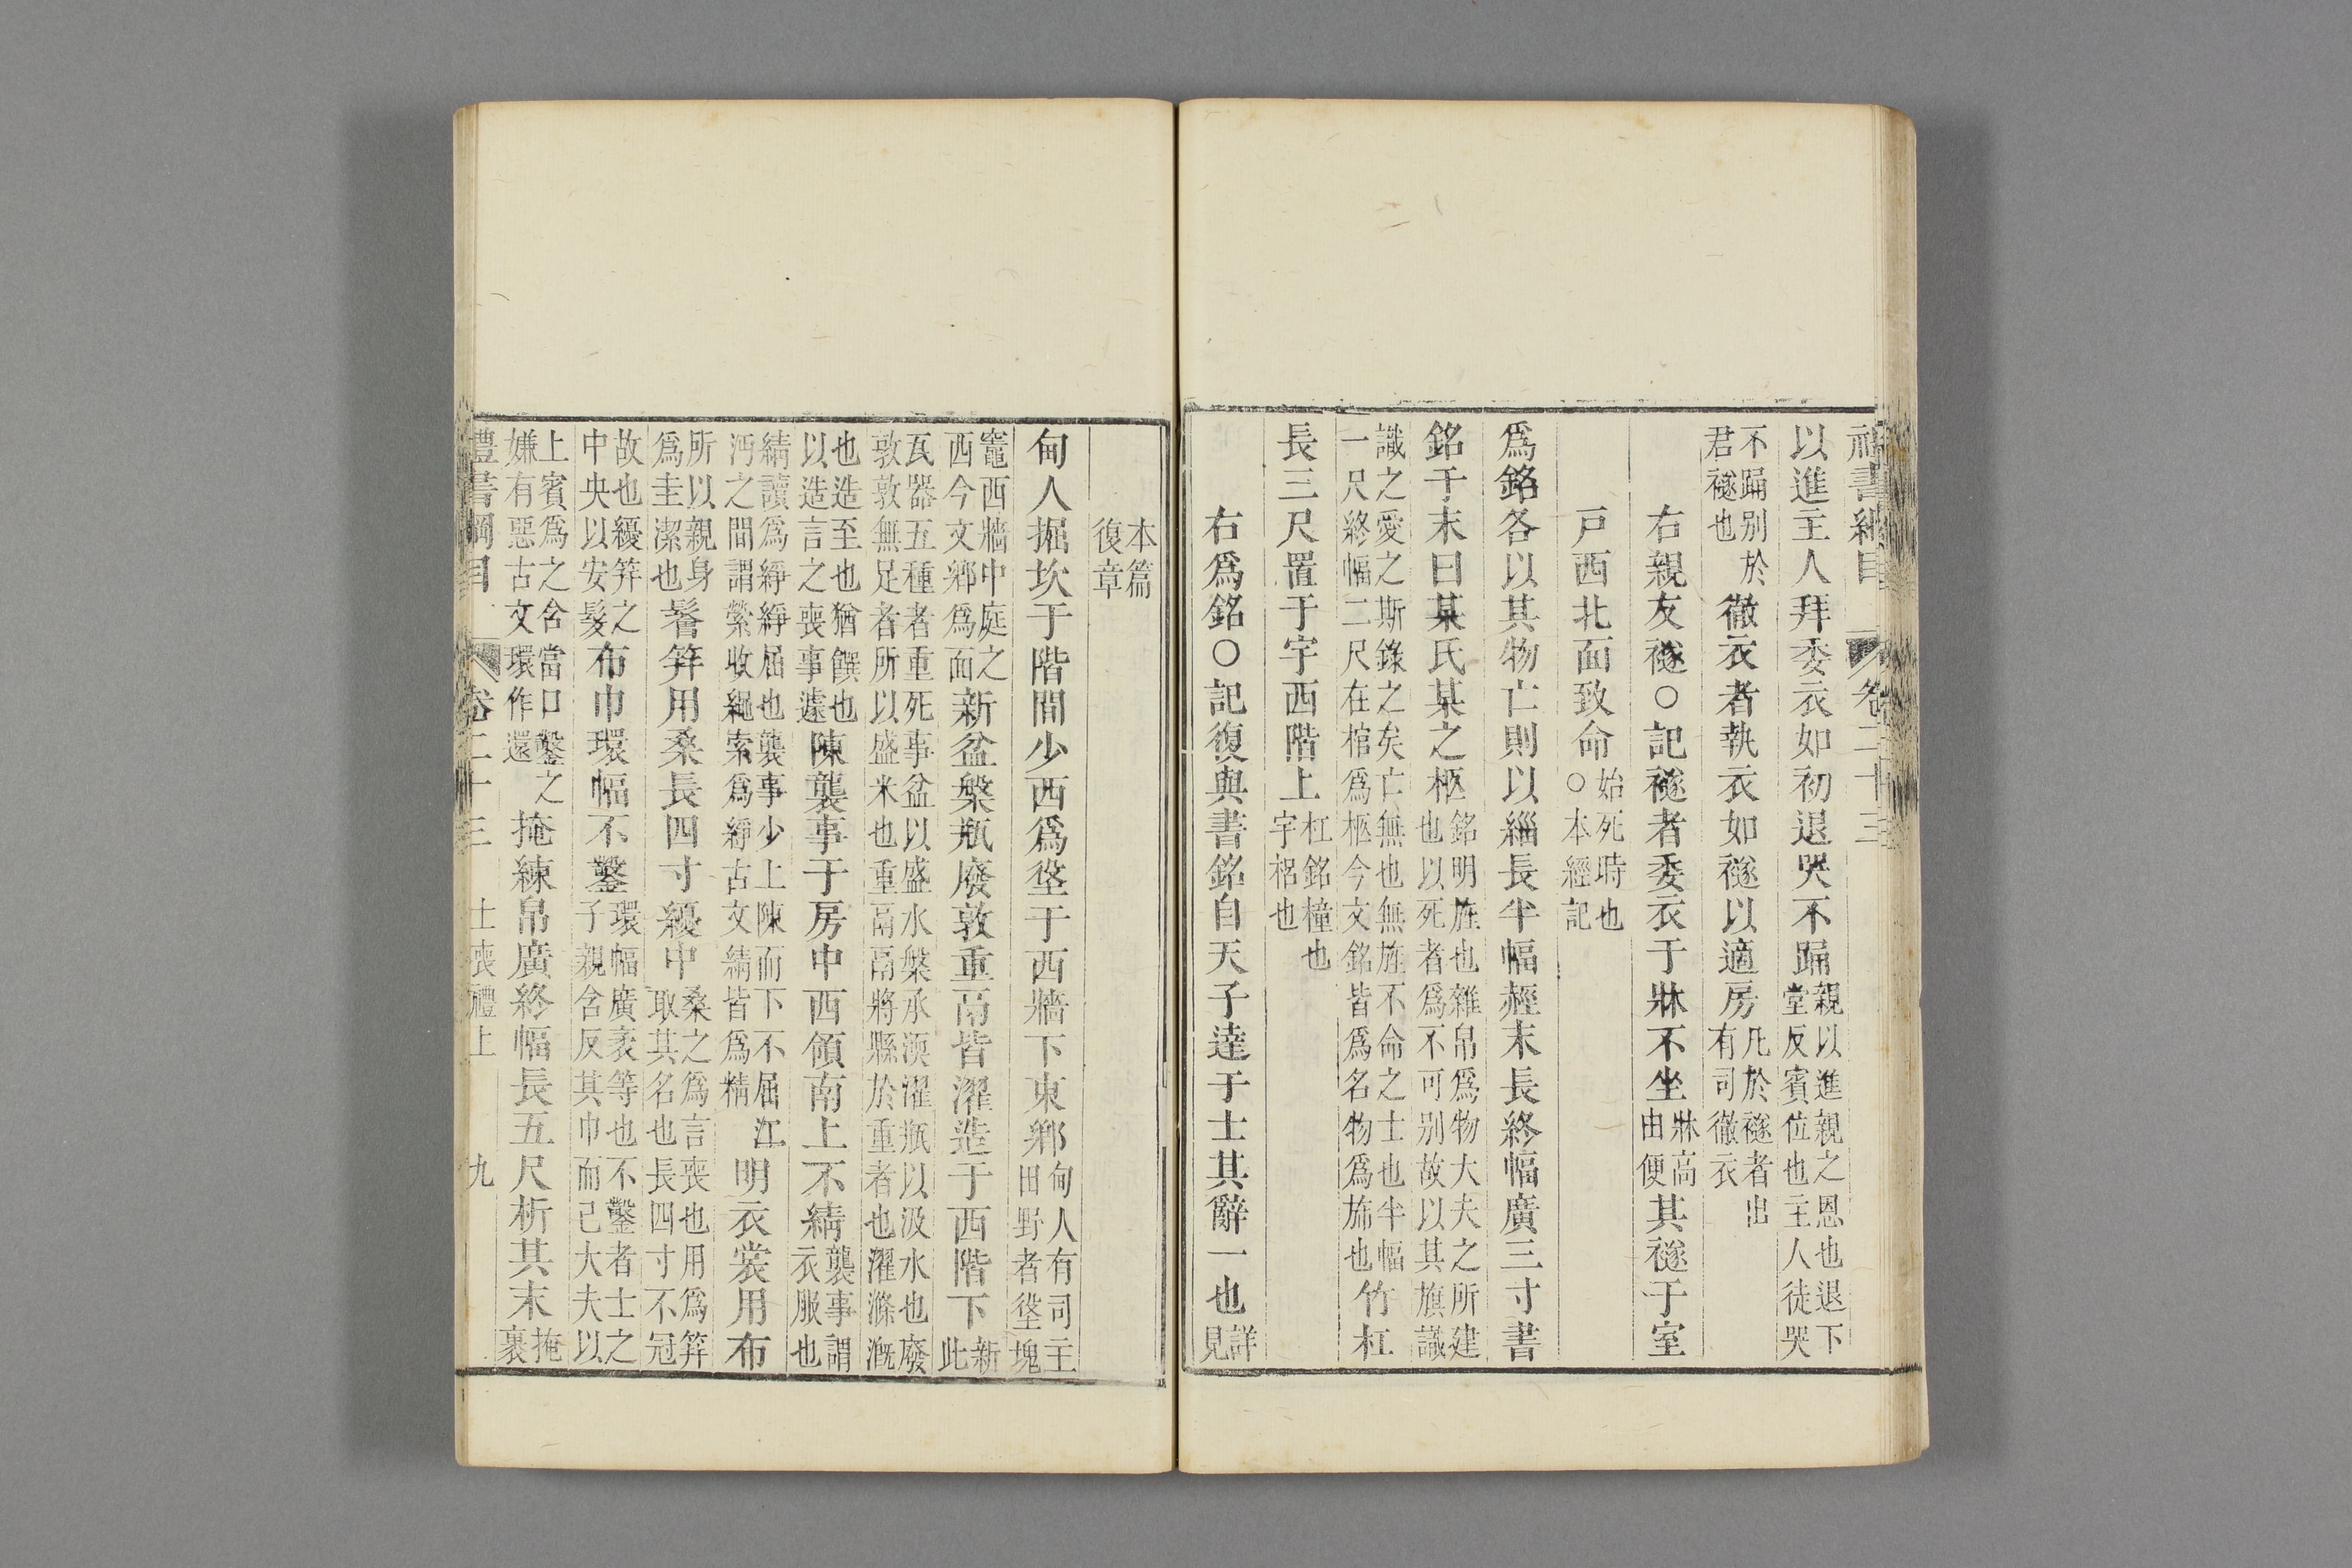 禮書綱目 卷二十三
以進主人拜委衣如初退哭不踊親以進親之恩也退下堂反賓位也主人徒哭
不踊别於君襚也徹衣者執衣如襚以適房凡於襚者出有司徹衣
右親友襚○記襚者委衣于牀不坐牀高由便其襚于室
戸西北面致命始死時也○本經記
爲銘各以其物亡則以緇長半幅䞓末長終幅廣三寸書
銘于末曰某氏某之柩銘明旌也雜帛爲物大夫之所建也以死者爲不可别故以其旗識
識之愛之斯錄之矣亡無也無旌不命之士也半幅一尺終幅二尺在棺爲柩今文銘皆爲名物爲斾也竹杠
長三尺置于宇西階上杠銘橦也宇梠也
右爲銘○記復與書銘自天子達于士其辭一也詳見
本篇復章
甸人掘坎于階間少西爲垼于西牆下東鄉甸人有司主田野者垼塊
竈西牆中庭之西今文鄉爲面新盆槃瓶廢敦重鬲皆濯造于西階下新此
瓦器五種者重死事盆以盛水槃承渜濯瓶以汲水也廢敦敦無足者所以盛米也重鬲鬲將縣於重者也濯滌溉
也造至也猶饌也以造言之喪事遽陳襲事于房中西領南上不綪襲事謂衣服也
綪讀爲䋫䋫屈也襲事少上陳而下不屈江沔之間謂縈收繩索爲䋫古文綪皆爲精明衣裳用布
所以親身爲圭潔也鬠笄用桑長四寸纋中桑之爲言喪也用爲笄取其名也長四寸不冠
故也纋笄之中央以安髮布巾環幅不鑿環幅廣袤等也不鑿者士之子親含反其巾而已大夫以
上賓爲之含當口鑿之嫌有惡古文環作還掩練帛廣終幅長五尺析其末掩裹
禮書綱目 卷二十三 士喪禮上 九